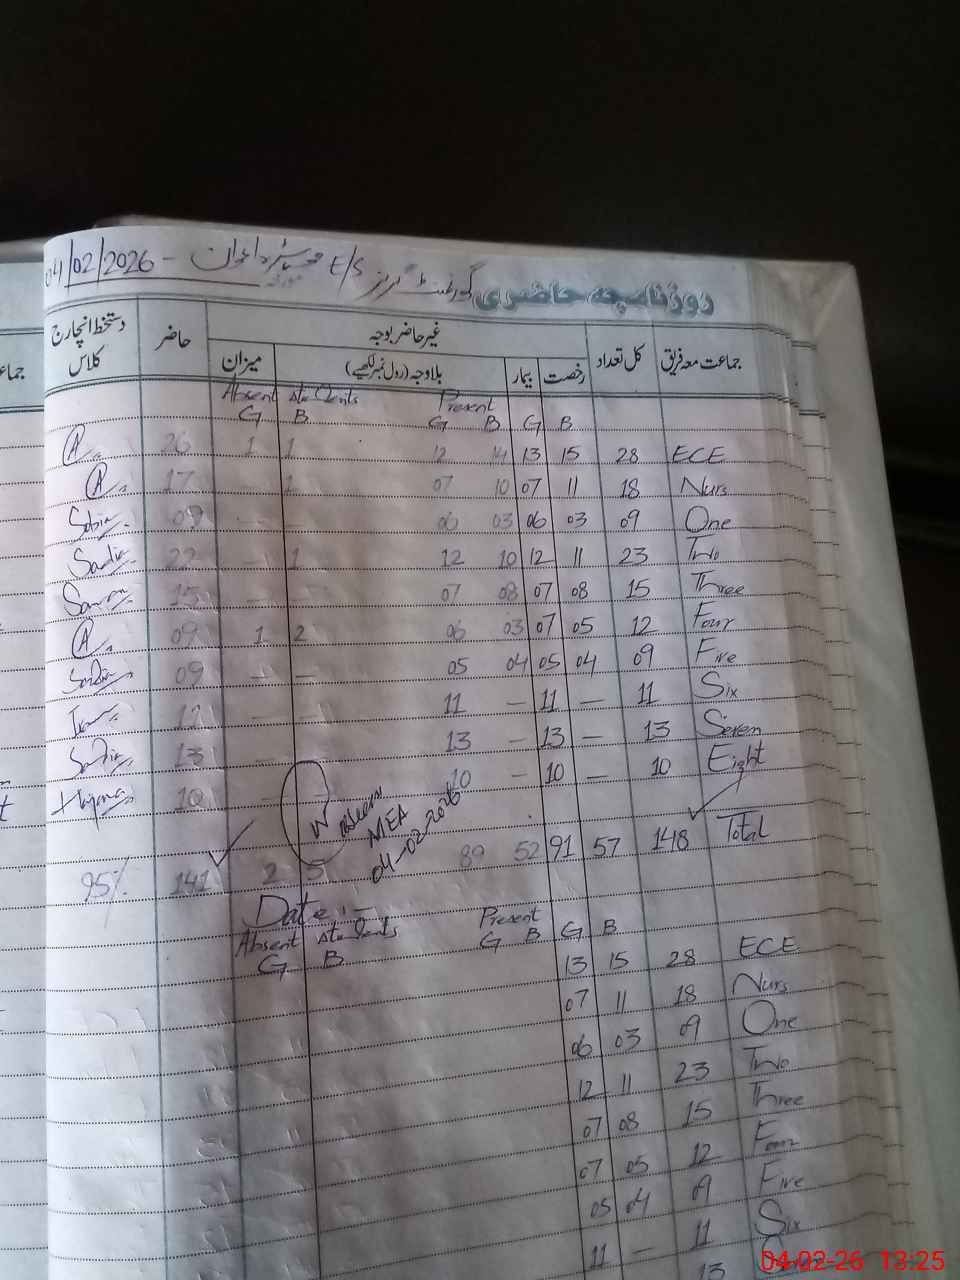 04/02/2026 - گورنمنٹ گرلز E/S
روزنامچہ حاضری
جماعت معہ فریق کل تعداد غیر حاضر بوجہ حاضر دستخط انچارج کلاس
رخصت بیمار بلاوجہ (رول نمبر لکھیے) میزان
Absent Students Present
G B G B G B
26 1 1 12 14 13 15 28 ECE
17 - 1 07 10 07 11 18 Nurs
Sobia 09 - - 06 03 06 03 09 One
Sadia 22 - 1 12 10 12 11 23 Two
15 - - 07 08 07 08 15 Three
09 1 2 06 03 07 05 12 Four
Sadia 09 - - 05 04 05 04 09 Five
- - 11 - 11 - 11 Six
Sadia 13 - 13 - 13 - 13 Seven
10 - - 10 - 10 - 10 Eight
MEA
04-02-2026
95% 141 2 5 89 52 91 57 148 Total
Date :-
Absent Students Present
G B G B G B
13 15 28 ECE
07 11 18 Nurs
06 03 09 One
12 11 23 Two
07 08 15 Three
07 05 12 Four
05 04 09 Five
11 - 11 Six
13
04-02-26 13:25